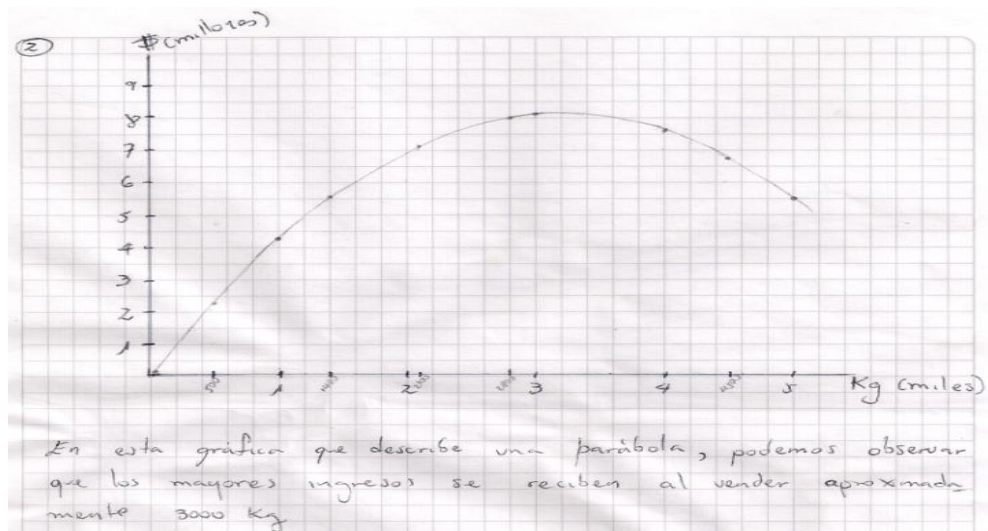 $ (millones)
2
9
8
7
6
5
4
3
2
1
500 1 2 3 4 5 Kg (miles)
En esta gráfica que describe una parábola, podemos observar
que los mayores ingresos se reciben al vender aproximada
mente 3000 Kg